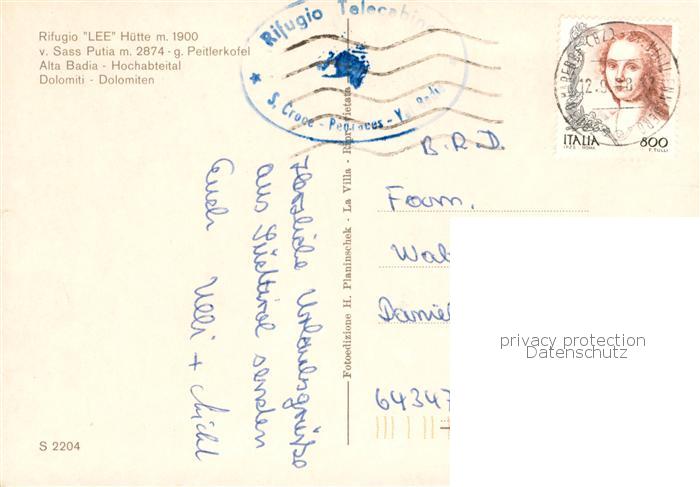 Rifugio "LEE" Hütte m. 1900
v. Sass Putia m. 2874 - g. Peitlerkofel
Alta Badia - Hochabteital
Dolomiti - Dolomiten
Rifugio Telecabin
S. Croce - Pedraces - Va Badia
ITALIA 800
1998 - ROMA F. TULLI
Herzliche Urlaubsgrüße
aus Südtirol senden
Euch Ulli +
Fotoedizione H. Planinschek - La Villa - Riprod. vietata
B.R.D.
Fam.
Wal
Daniel
64347
privacy protection
Datenschutz
S 2204